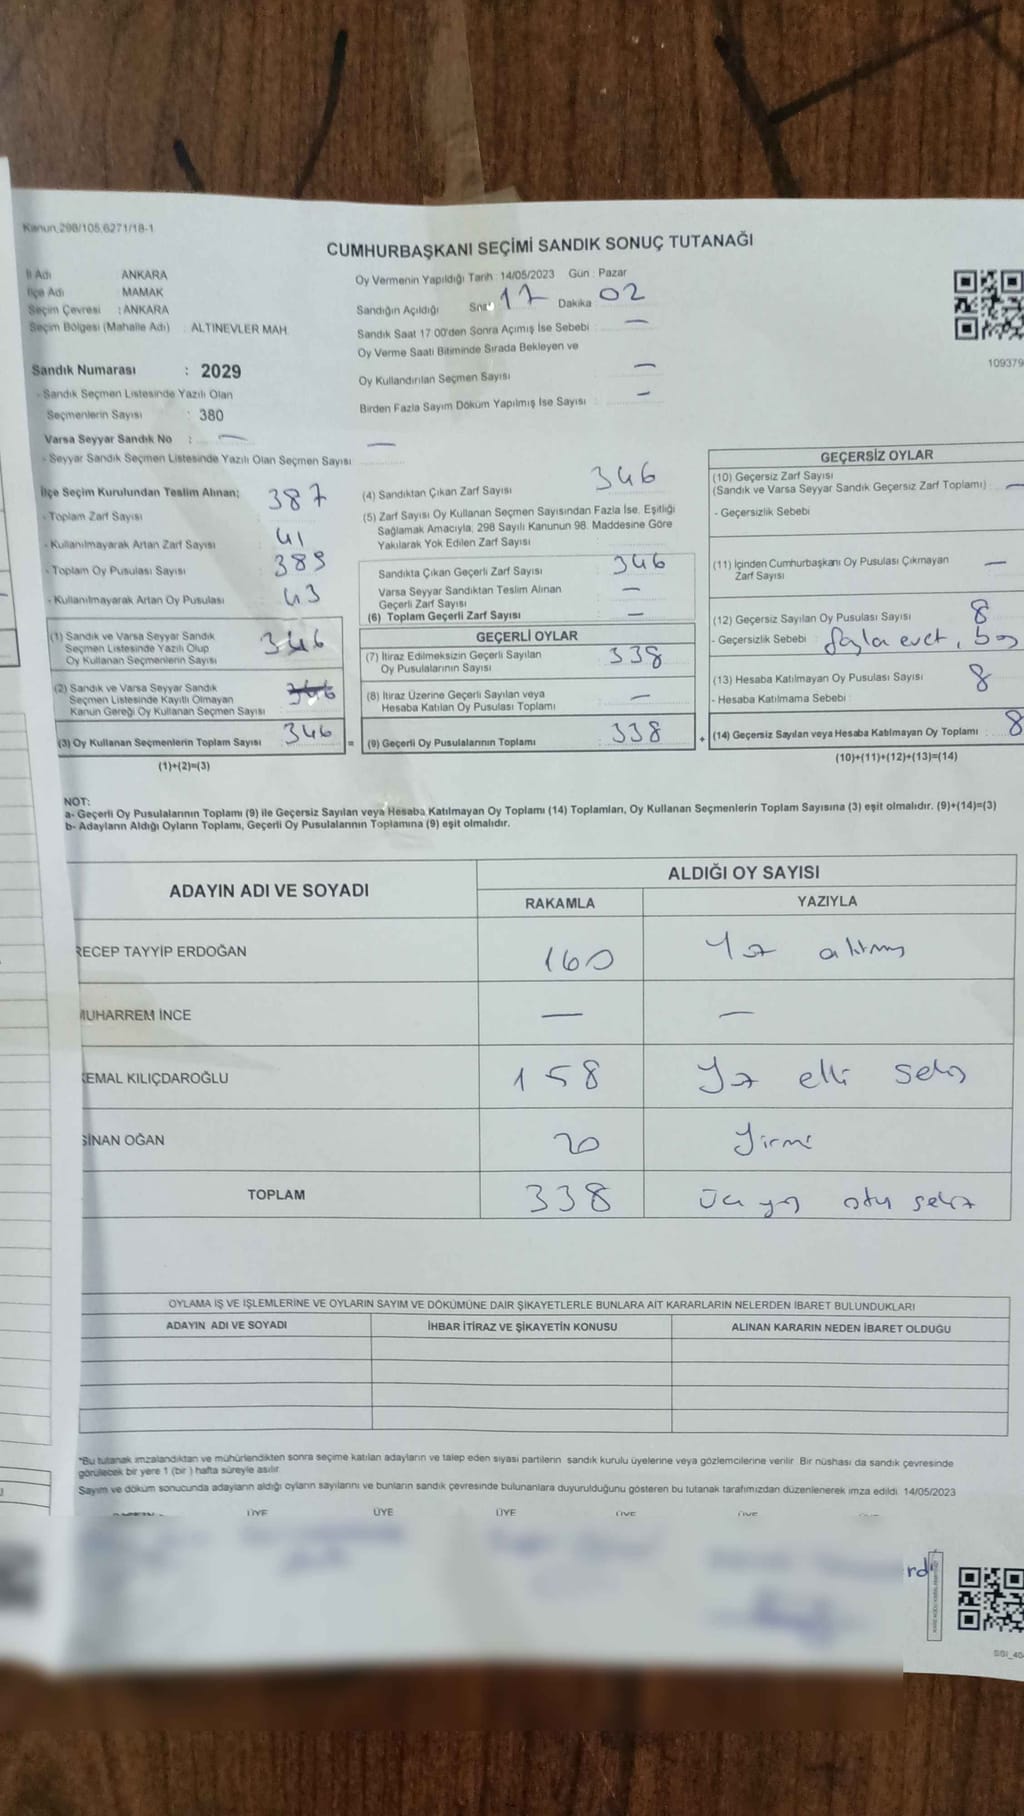 Kanun,298/105,6271/18-1
CUMHURBAŞKANI SEÇİMİ SANDIK SONUÇ TUTANAĞI
İl Adı ANKARA
İlçe Adı MAMAK
Seçim Çevresi : ANKARA
Seçim Bölgesi (Mahalle Adı) : ALTINEVLER MAH.
Sandık Numarası : 2029
- Sandık Seçmen Listesinde Yazılı Olan
Seçmenlerin Sayısı : 380
Varsa Seyyar Sandık No : —
- Seyyar Sandık Seçmen Listesinde Yazılı Olan Seçmen Sayısı —
Oy Vermenin Yapıldığı Tarih : 14/05/2023 Gün : Pazar
Sandığın Açıldığı Saat 17 Dakika 02
Sandık Saat 17.00'den Sonra Açımış İse Sebebi : —
Oy Verme Saati Bitiminde Sırada Bekleyen ve
Oy Kullandırılan Seçmen Sayısı —
Birden Fazla Sayım Döküm Yapılmış İse Sayısı : —
109379
İlçe Seçim Kurulundan Teslim Alınan;
- Toplam Zarf Sayısı 387
- Kullanılmayarak Artan Zarf Sayısı 41
- Toplam Oy Pusulası Sayısı 389
- Kullanılmayarak Artan Oy Pusulası 43
(1) Sandık ve Varsa Seyyar Sandık
Seçmen Listesinde Yazılı Olup
Oy Kullanan Seçmenlerin Sayısı 346
(2) Sandık ve Varsa Seyyar Sandık
Seçmen Listesinde Kayıtlı Olmayan
Kanun Gereği Oy Kullanan Seçmen Sayısı 346
(3) Oy Kullanan Seçmenlerin Toplam Sayısı 346
(1)+(2)=(3)
(4) Sandıktan Çıkan Zarf Sayısı 346
(5) Zarf Sayısı Oy Kullanan Seçmen Sayısından Fazla İse, Eşitliği
Sağlamak Amacıyla; 298 Sayılı Kanunun 98. Maddesine Göre
Yakılarak Yok Edilen Zarf Sayısı
Sandıkta Çıkan Geçerli Zarf Sayısı 346
Varsa Seyyar Sandıktan Teslim Alınan
Geçerli Zarf Sayısı —
(6) Toplam Geçerli Zarf Sayısı —
GEÇERLİ OYLAR
(7) İtiraz Edilmeksizin Geçerli Sayılan
Oy Pusulalarının Sayısı 338
(8) İtiraz Üzerine Geçerli Sayılan veya
Hesaba Katılan Oy Pusulası Toplamı —
= (9) Geçerli Oy Pusulalarının Toplamı 338
GEÇERSİZ OYLAR
(10) Geçersiz Zarf Sayısı
(Sandık ve Varsa Seyyar Sandık Geçersiz Zarf Toplamı) : —
- Geçersizlik Sebebi
(11) İçinden Cumhurbaşkanı Oy Pusulası Çıkmayan
Zarf Sayısı —
(12) Geçersiz Sayılan Oy Pusulası Sayısı 8
- Geçersizlik Sebebi : fazla evet, boş
(13) Hesaba Katılmayan Oy Pusulası Sayısı 8
- Hesaba Katılmama Sebebi
+ (14) Geçersiz Sayılan veya Hesaba Katılmayan Oy Toplamı : 8
(10)+(11)+(12)+(13)=(14)
NOT:
a- Geçerli Oy Pusulalarının Toplamı (9) ile Geçersiz Sayılan veya Hesaba Katılmayan Oy Toplamı (14) Toplamları, Oy Kullanan Seçmenlerin Toplam Sayısına (3) eşit olmalıdır. (9)+(14)=(3)
b- Adayların Aldığı Oyların Toplamı, Geçerli Oy Pusulalarının Toplamına (9) eşit olmalıdır.
ADAYIN ADI VE SOYADI
ALDIĞI OY SAYISI
RAKAMLA YAZIYLA
RECEP TAYYİP ERDOĞAN 160 Yüz altmış
MUHARREM İNCE — —
KEMAL KILIÇDAROĞLU 158 Yüz elli sekiz
SİNAN OĞAN 20 Yirmi
TOPLAM 338 üç yüz otuz sekiz
OYLAMA İŞ VE İŞLEMLERİNE VE OYLARIN SAYIM VE DÖKÜMÜNE DAİR ŞİKAYETLERLE BUNLARA AİT KARARLARIN NELERDEN İBARET BULUNDUKLARI
ADAYIN ADI VE SOYADI İHBAR İTİRAZ VE ŞİKAYETİN KONUSU ALINAN KARARIN NEDEN İBARET OLDUĞU
*Bu tutanak imzalandıktan ve mühürlendikten sonra seçime katılan adayların ve talep eden siyasi partilerin sandık kurulu üyelerine veya gözlemcilerine verilir. Bir nüshası da sandık çevresinde
görülecek bir yere 1 (bir) hafta süreyle asılır.
Sayım ve döküm sonucunda adayların aldığı oyların sayılarını ve bunların sandık çevresinde bulunanlara duyurulduğunu gösteren bu tutanak tarafımızdan düzenlenerek imza edildi. 14/05/2023
ÜYE ÜYE ÜYE ÜYE ÜYE